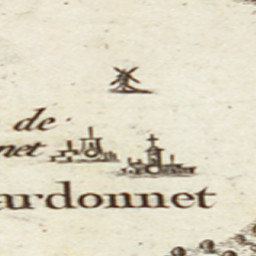 de
net
ardonnet